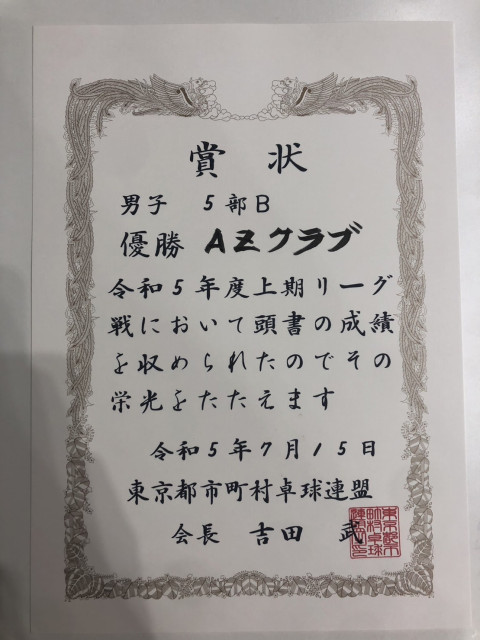 賞 状
男子 5部B
優勝 AZクラブ
令和5年度上期リーグ
戦において頭書の成績
を収められたのでその
栄光をたたえます
令和5年7月15日
東京都市町村卓球連盟
会長 吉田 武